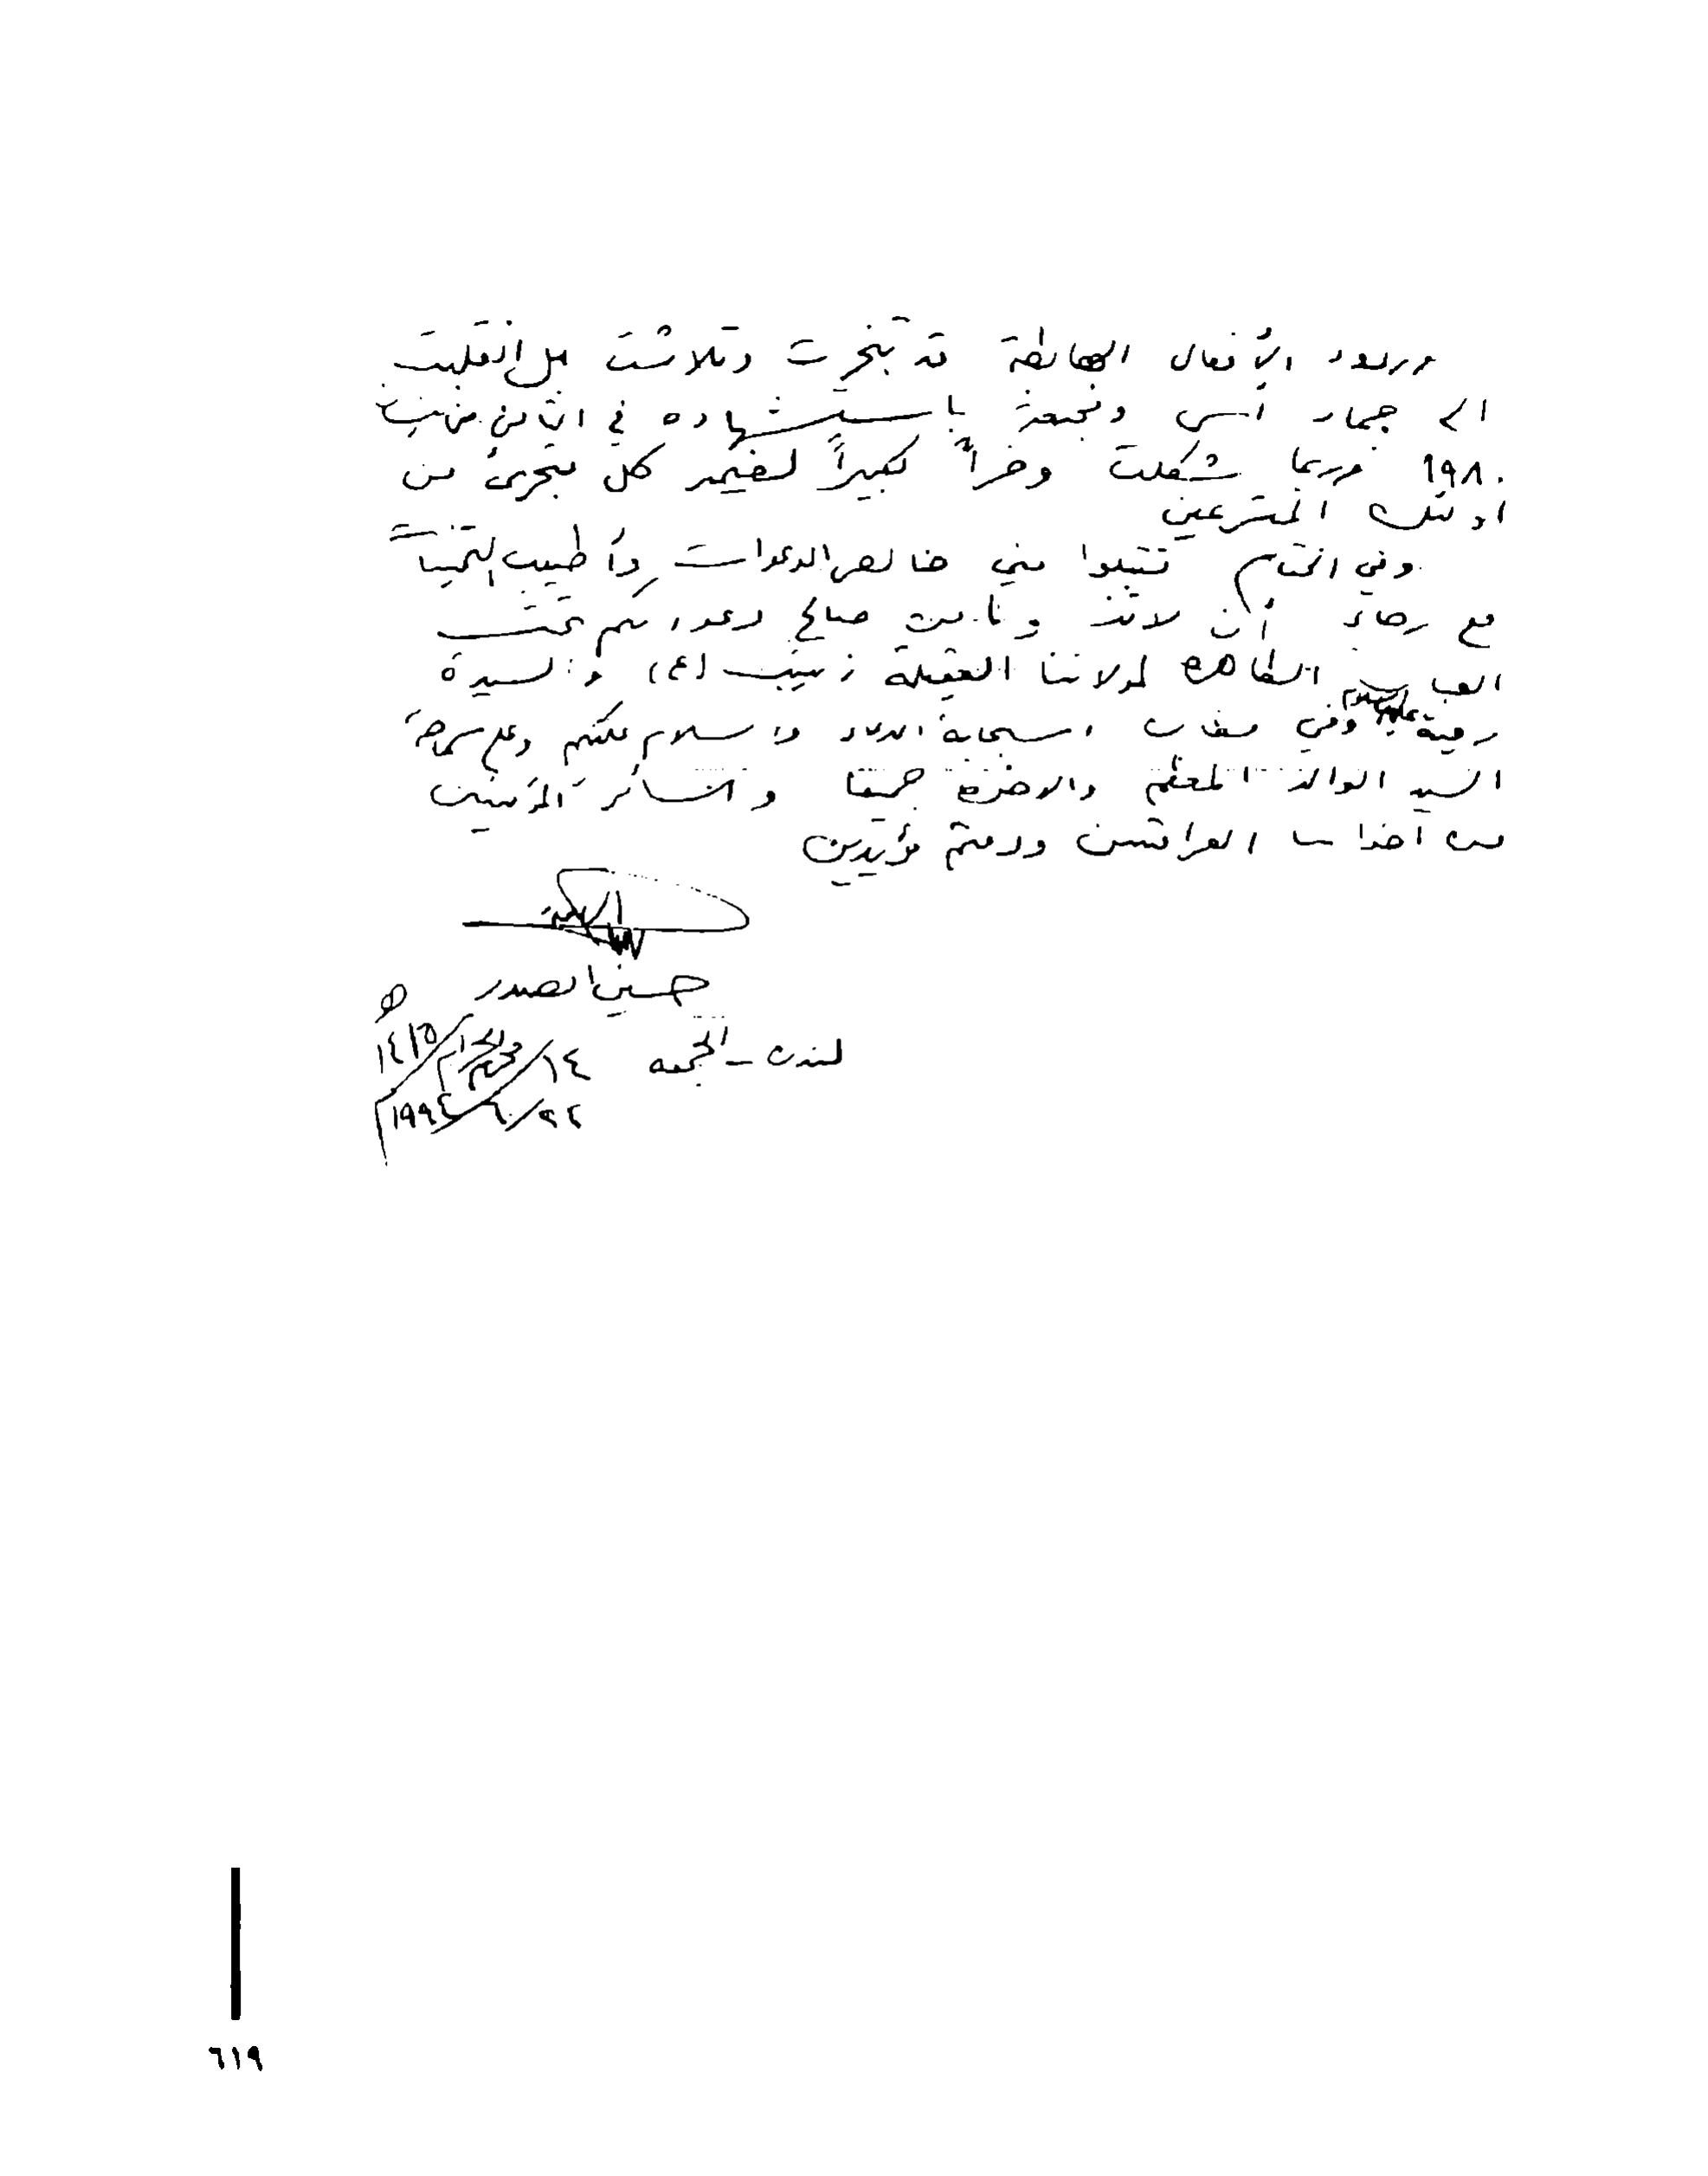 وردود الأفعال الهابطة قد تبخرت وتلاشت بل انقلبت
الى جمار أسى وفجيعة باستشهاده في الثامن من نيسان
١٩٨٠ وربما شكلت وخزاً كبيراً لضمير كل متجرئ من
اولئك المتسرعين
وفي الختام تقبلوا مني خالص الدعوات وأطيب التمنيات
مع رجاء أن لا من صالح دعواتكم تحت
الطاهرة لمولاتنا العقيلة زينب (ع) والسيدة
رقية عليها السلام وفي استجابة الدعاء والسلام عليكم وعلى سماحة
السيد الوالد المعظم والاخوة جميعا والسائر المؤمنين
من العراقيين ودمتم مؤيدين
حسين الصدر
لندن - الجمعة ١٤/محرم الحرام/١٤١٥ هـ
١٩٩٤م
٦١٩